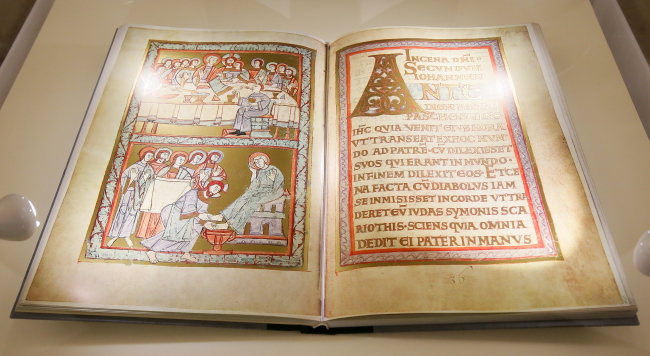 INCENA DNI·
SECVNDVM
IOHANNEM
ANTE
DIEM
IHC QUIA VENIT EIUS HORA
VT TRANSEAT EXHOC MUN
DO AD PATRĒ· CŪ DILEXISSET
SVOS QVI ERANT IN MVNDO·
INFINEM DILEXIT EOS· ET CE
NA FACTA CŪ DIABOLVS IAM
SE INMISISSET INCORDE VT TRA
DERET EŪ IVDAS SYMONIS SCA
RIOTHIS· SCIENS QUIA OMNIA
DEDIT EI PATER IN MANVS